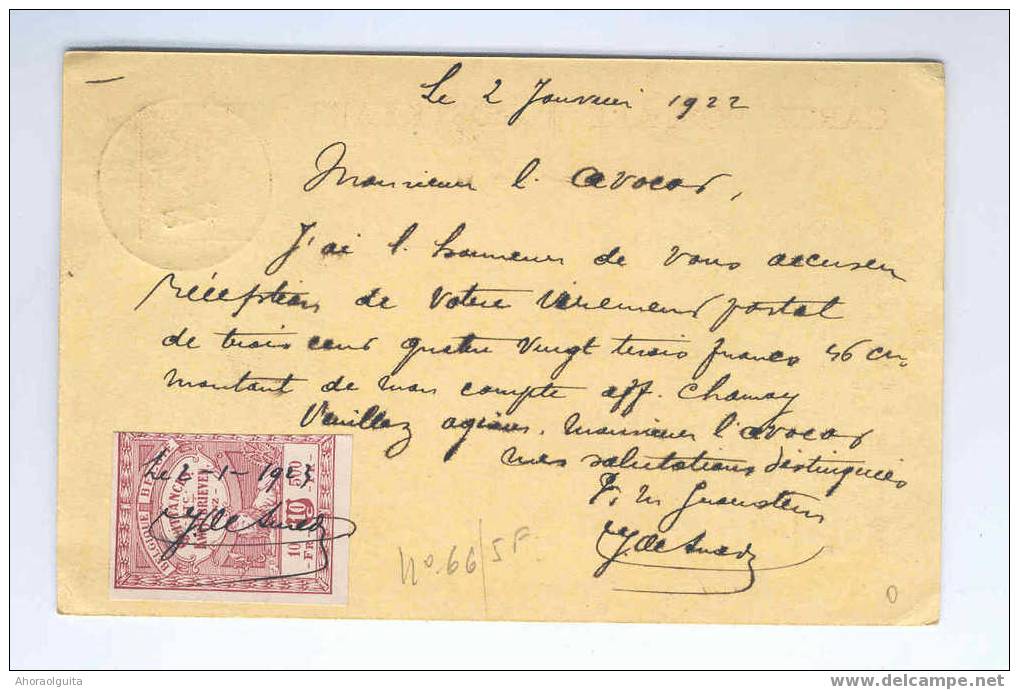 Le 2 Janvier 1922
Monsieur l. avocat,
J'ai l. honneur de vous accuser
réception de votre virement postal
de trois cent quatre vingt trois francs 46 cm
montant de mon compte aff. Chamay
Veuillez agréer, Monsieur l'avocat
mes salutations distinguées
Le 2-1-1923
BELGIQUE
10
n°. 66/5F.
0
Ahoraolguita
www.delcampe.net